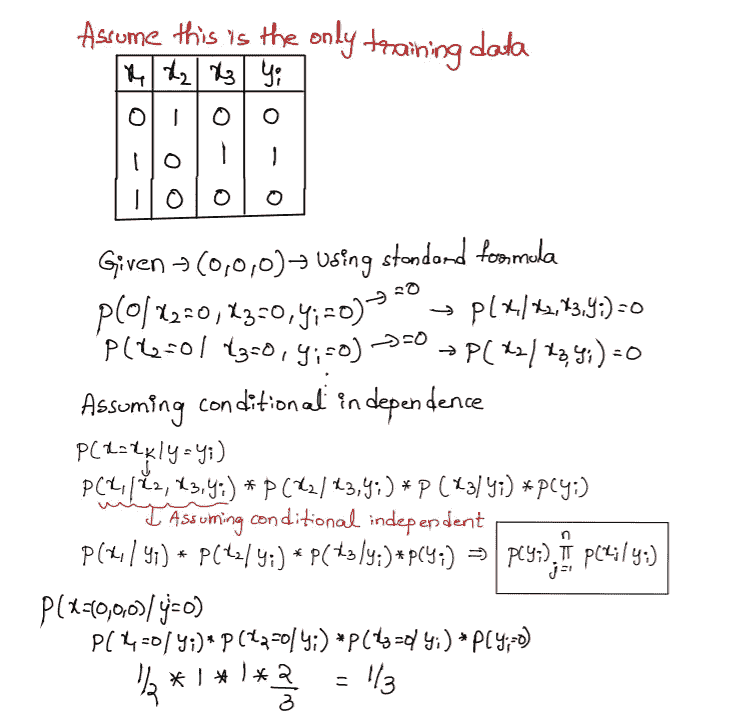 Assume this is the only training data
x₁ x₂ x₃ yᵢ
0 1 0 0
1 0 1 1
1 0 0 0
Given → (0,0,0) → Using standard formula
P(0/x₂=0, x₃=0, yᵢ=0) → =0 → P(x₁/x₂,x₃,yᵢ)=0
P(x₂=0/ x₃=0, yᵢ=0) → =0 → P(x₂/x₃,yᵢ)=0
⋮
Assuming conditional independence
P(x=xₖ/y=yᵢ)
↓
P(x₁/x₂, x₃, yᵢ) * P(x₂/x₃,yᵢ) * P(x₃/yᵢ) * P(yᵢ)
↓ Assuming conditional independent
P(x₁/yᵢ) * P(x₂/yᵢ) * P(x₃/yᵢ) * P(yᵢ) ⇒ P(yᵢ). n Π j=1 P(xⱼ/yᵢ)
P(x=(0,0,0)/y=0)
P(x₁=0/yᵢ) * P(x₂=0/yᵢ) * P(x₃=0/yᵢ) * P(yᵢ=0)
1/2 * 1 * 1 * 2/3 = 1/3